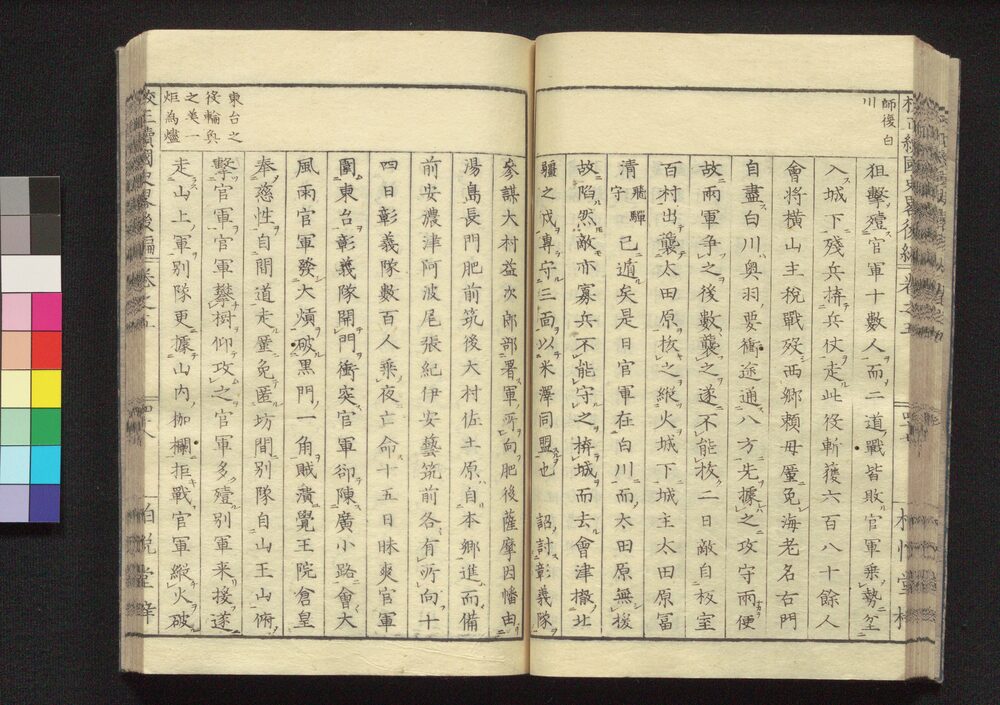 師復白
川
狙擊殪官軍十數人而二道戰皆敗官軍乘勢坌
入城下殘兵捹兵仗走此役斬獲六百八十餘人
會将横山主税戰歿西郷頼母厪免海老名右門
自盡白川奥羽要衝途通八方先據之攻守兩便
故兩軍争之後數襲之遂不能抜二日敵自板室
百村出襲太田原抜之縱火城下城主太田原冨
清飛驒守已遁矣是日官軍在白川而太田原無援
故陷然敵亦寡兵不能守之捹城而去會津撤北
疆之戍專守三面以米澤同盟也 詔討彰義隊
參謀大村益次郎部署軍所向肥後薩摩因幡由
湯島長門肥前筑後大村佐土原自本郷進而備
前安濃津阿波尾張紀伊安藝筑前各有所向十
四日彰義隊數百人乘夜亡命十五日昧爽官軍
圍東台彰義隊開門衝突官軍卻陳廣小路會大
風雨官軍發大熕破黒門一角賊潰覺王院倉皇
奉慈性自間道走厪免匿坊間別隊自山王山俯
擊官軍官軍攀樹仰攻之官軍多殪別軍来接遂
走山上軍別隊更據山内枷欄拒戰官軍縱火破
東台之
役輪奐
之美一
炬為燼
校正續國史畧後編 卷之五
四十八
柏悅堂梓